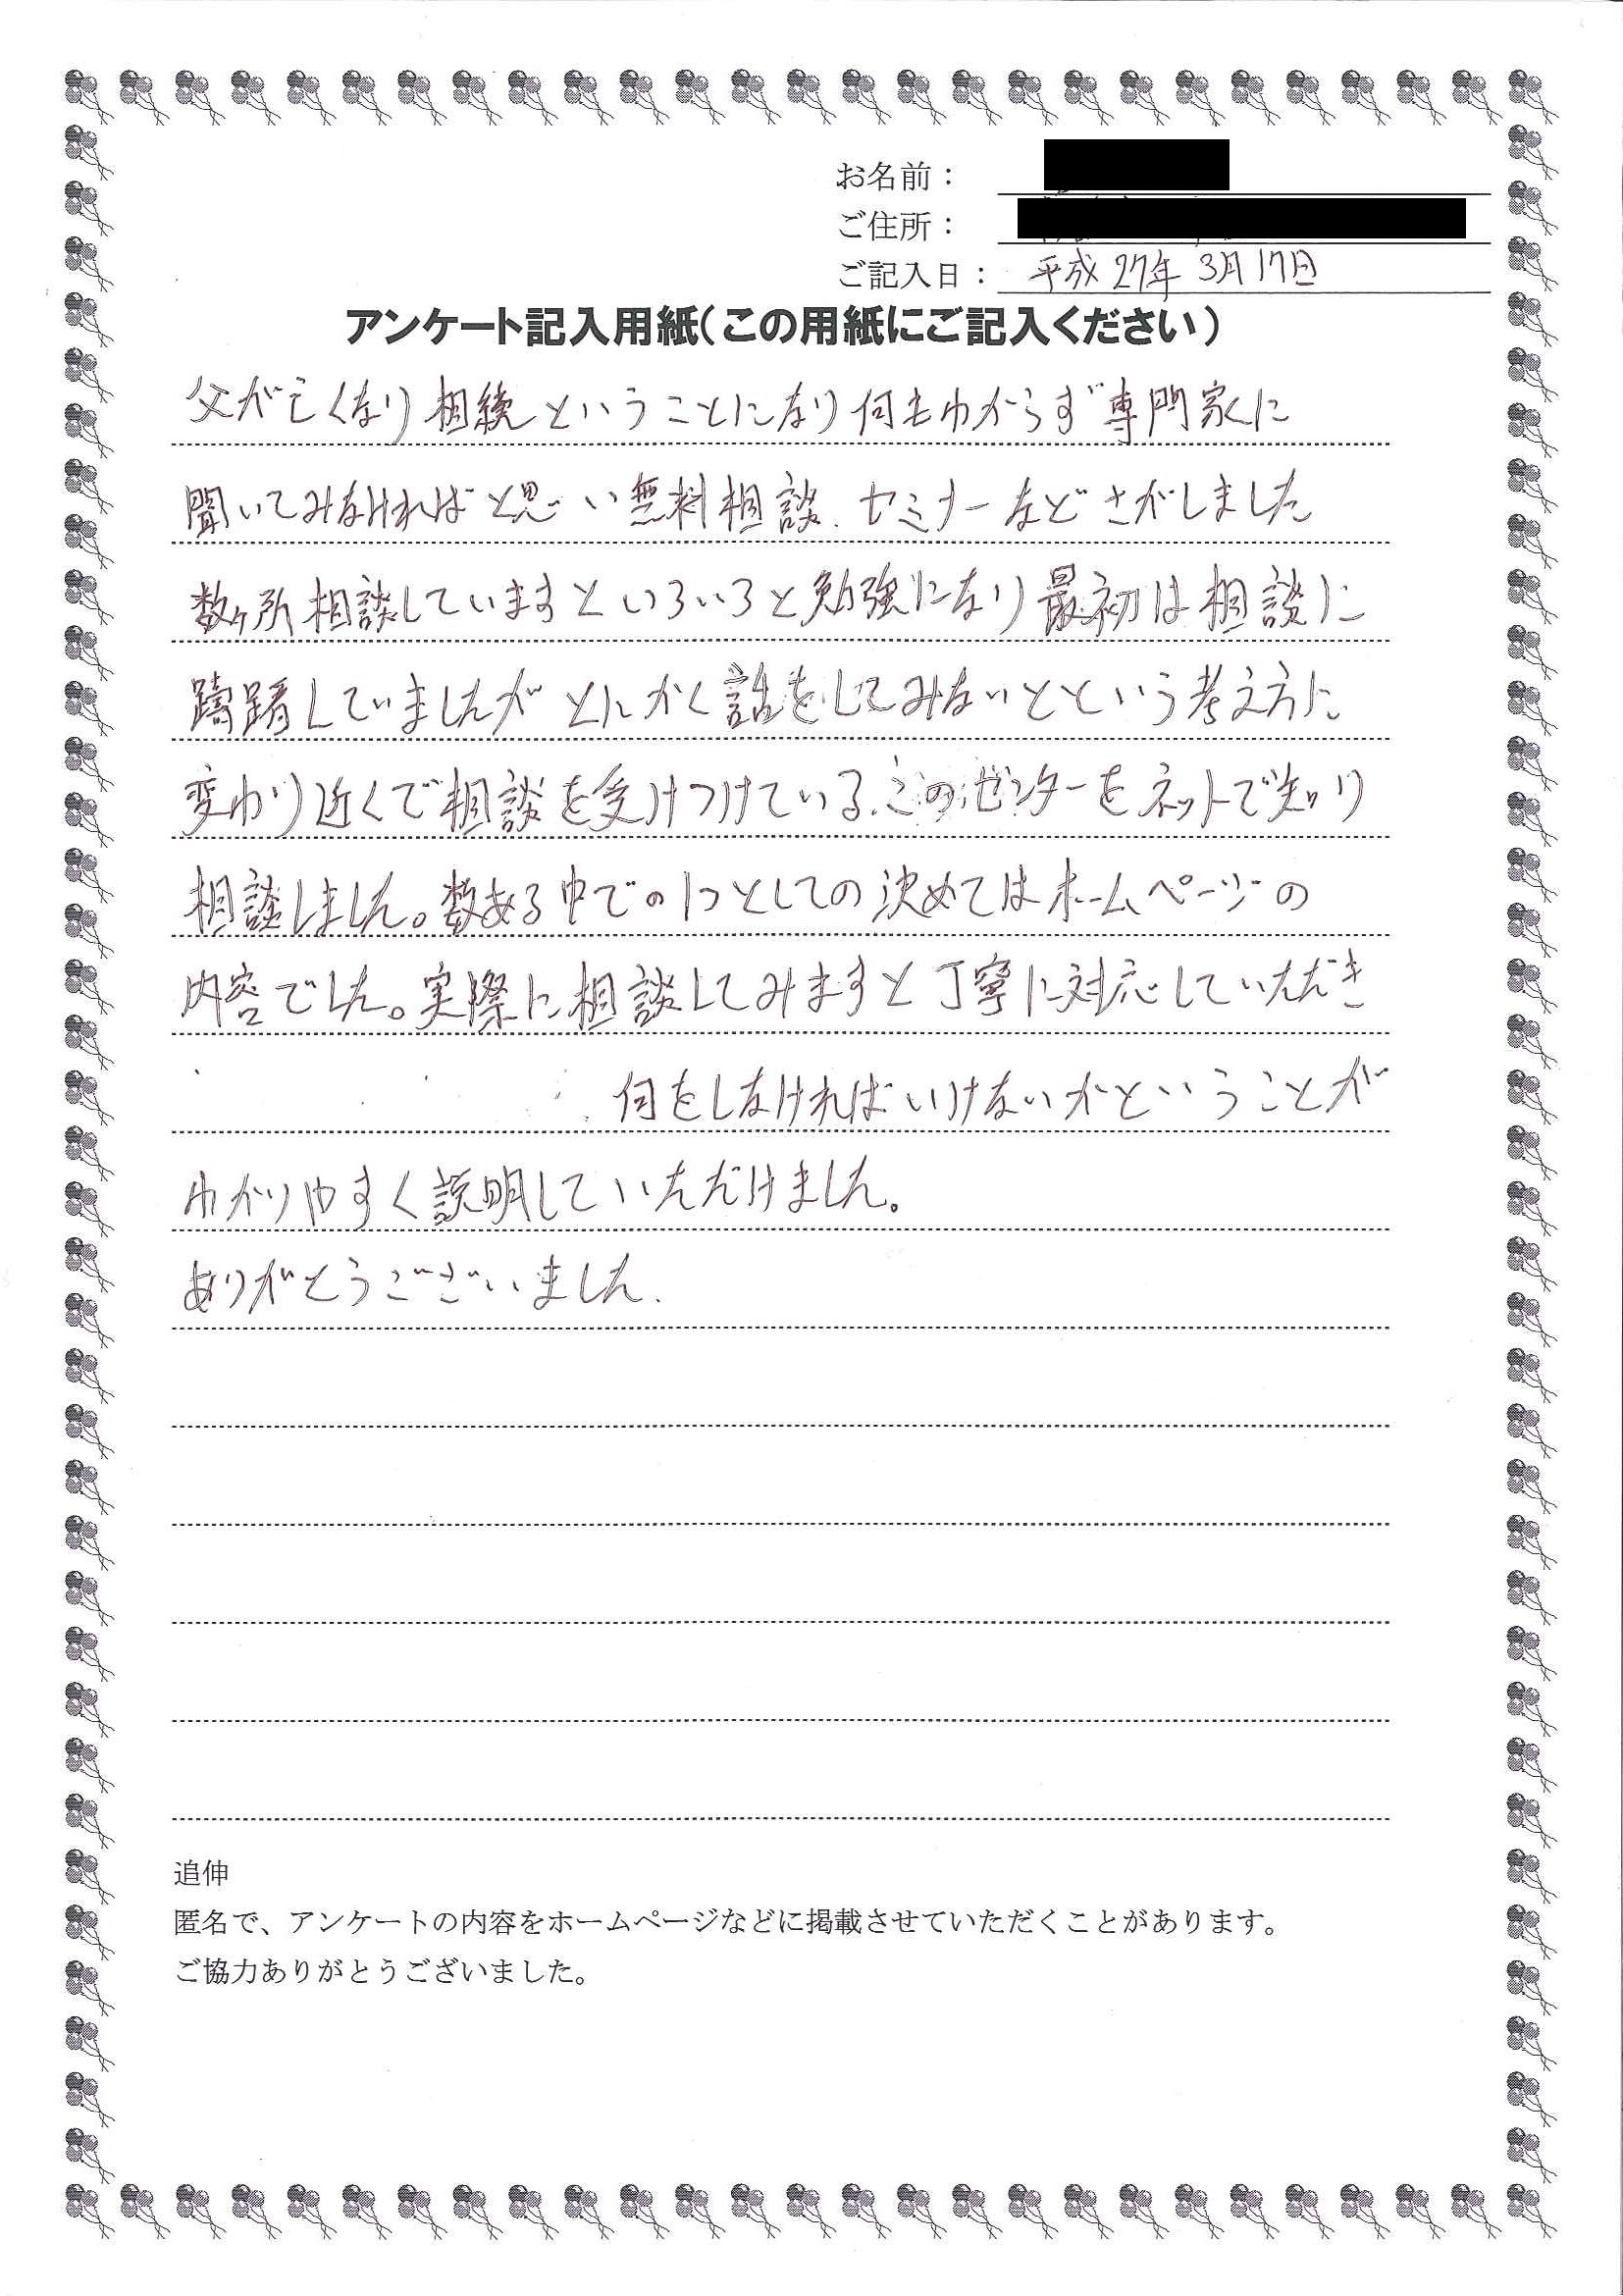 お名前：
ご住所：
ご記入日： 平成27年 3月17日
アンケート記入用紙（この用紙にご記入ください）
父が亡くなり相続ということになり何もわからず専門家に
聞いてみなければと思い無料相談、セミナーなどさがしました
数ヶ所相談していますといろいろと勉強になり最初は相談に
躊躇していましたがとにかく話をしてみないとという考え方に
変わり近くで相談を受けつけている、このセンターをネットで知り
相談しました。数ある中での1つとしての決めてはホームページの
内容でした。実際に相談してみますと丁寧に対応していただき
何をしなければいけないかということが
わかりやすく説明していただけました。
ありがとうございました.
追伸
匿名で、アンケートの内容をホームページなどに掲載させていただくことがあります。
ご協力ありがとうございました。